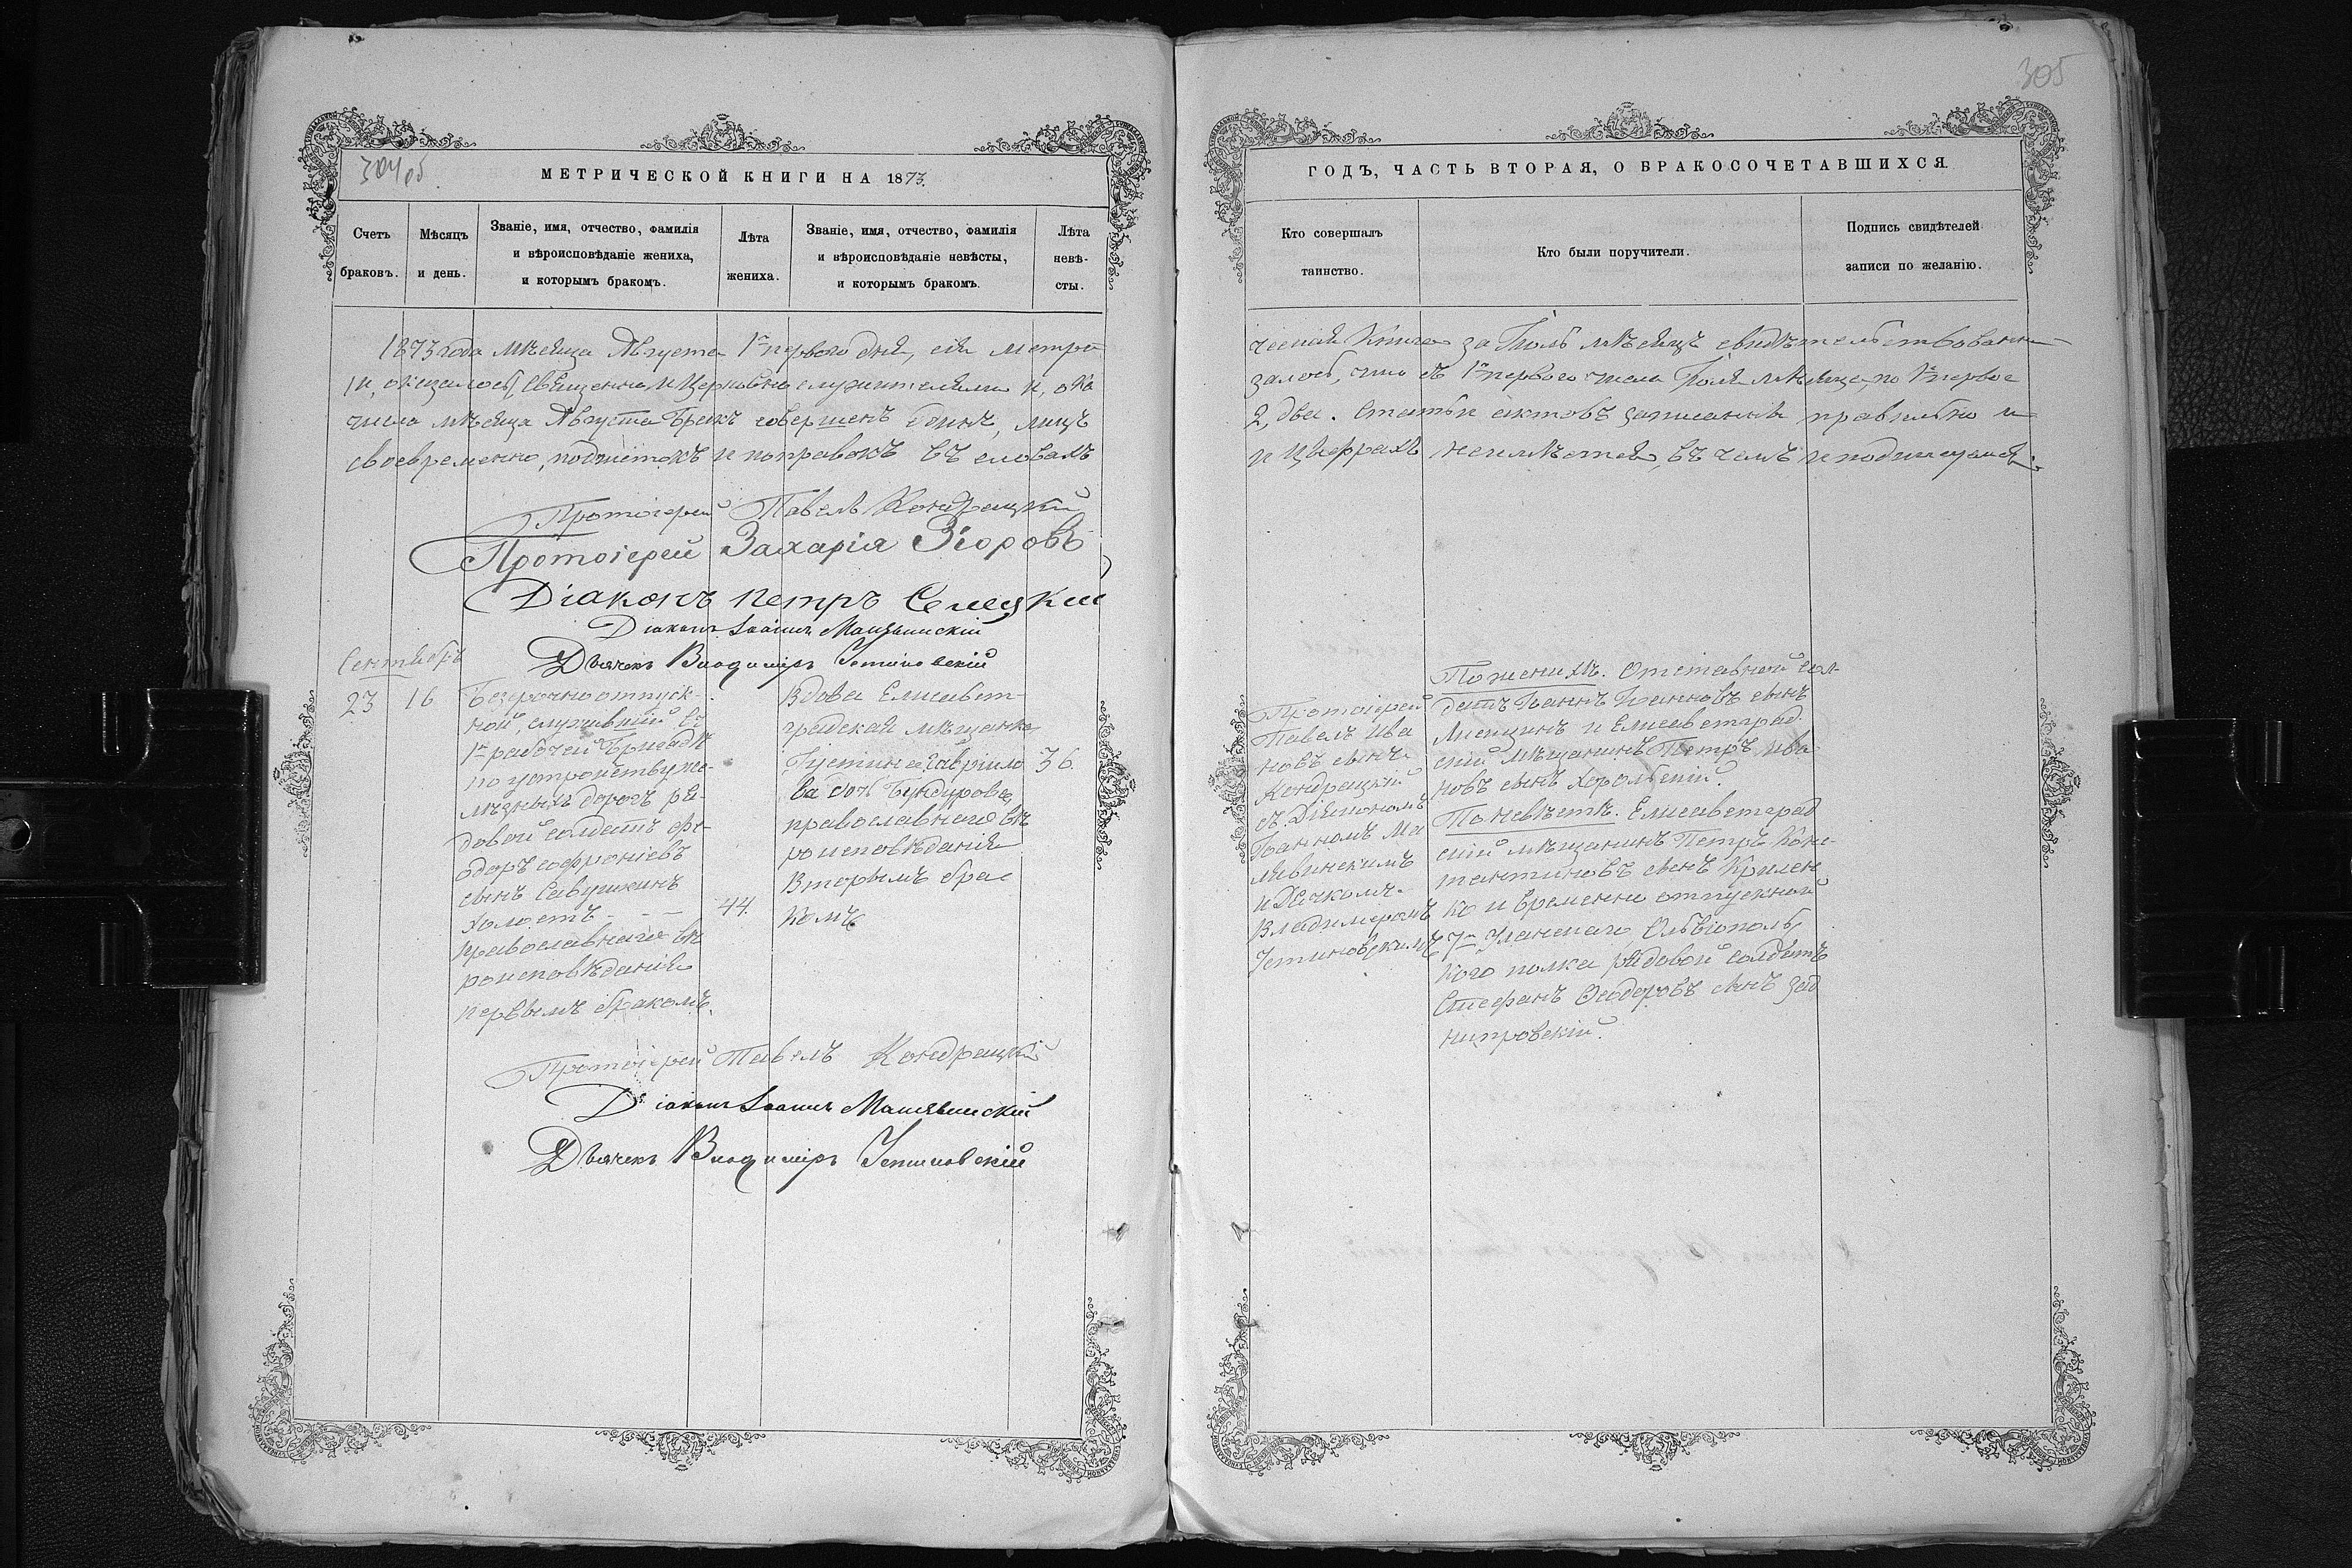 304 об
МЕТРИЧЕСКОЙ КНИГИ НА 1873.
Счетъ браковъ.
Мѣсяцъ и день.
Званіе, имя, отчество, фамилія
и вѣроисповѣданіе жениха,
и которымъ бракомъ.
Лѣта жениха.
Званіе, имя, отчество, фамилія
и вѣроисповѣданіе невѣсты,
и которымъ бракомъ.
Лѣта невѣ-
сты.
1873 года мѣсяца Августа 1го первого дня, сія метри
и, оказалось
Священно и Церковно служителями и, ока
числа мѣсяца Августа Бракъ совершенъ одинъ, лицъ
своевременно, подчистокъ и поправокъ въ словахъ
Протоіерей Павелъ Кондрацкій
Протоіерей Захарія Згоровъ
Діаконъ Петръ Селецкій
Діаконъ Іоаннъ Манявинскій
Дьячекъ Владиміръ Устиновскій
Сентябрь
23
16
Безсрочно отпуск-
ной, служившій въ
1й рабочей Бригадѣ
по устройству же-
лѣзныхъ дорогъ ря-
довой солдатъ Фе-
одоръ Софроніевъ
сынъ Савушкинъ
холостъ - - -
православнаго вѣ
роисповѣданія
первымъ бракомъ.
44.
Вдова Елисавет-
градская мѣщанка
Іустина Гавріило
ва дочь Бундурова
православнаго вѣ
роисповѣданія
Вторымъ бра
комъ
36.
Протоіерей Павелъ Кондрацкій
Діаконъ Іоаннъ Манявинскій
Дьячекъ Владиміръ Устиновскій
305
ГОДЪ, ЧАСТЬ ВТОРАЯ, О БРАКОСОЧЕТАВШИХСЯ
Кто совершалъ
таинство.
Кто были поручители.
Подпись свидѣтелей
записи по желанію.
ческая Книга за Іюль мѣсяцъ свидѣтельствованна
залось, что съ 1го первого числа Іюля мѣсяца, по 1е первое
2, два. Статьи актовъ записанны правильно и
и цыфрахъ неимѣется, въ чемъ и подписуемся.
Протоіерей
Павелъ Ива
новъ сынъ
Кондрацкій
съ Діякономъ
Іоанномъ Ма
нявинскимъ
и Дячкомъ
Владиміромъ
Устиновскимъ
По женихѣ. Отставной сол-
датъ Іоаннъ Іоанновъ сынъ
и Елисаветград
скій мѣщанинъ Петръ Ива
новъ сынъ Хорольскій.
По невѣстѣ. Елисаветград
скій мѣщанинъ Петръ Конс-
тантиновъ сынъ Крилен
ко и временно отпускной
7го Уланскаго Ольвіополь
кого полка рядовой солдатъ
Стефанъ Ѳеодоровъ сынъ Зад
нипровскій.